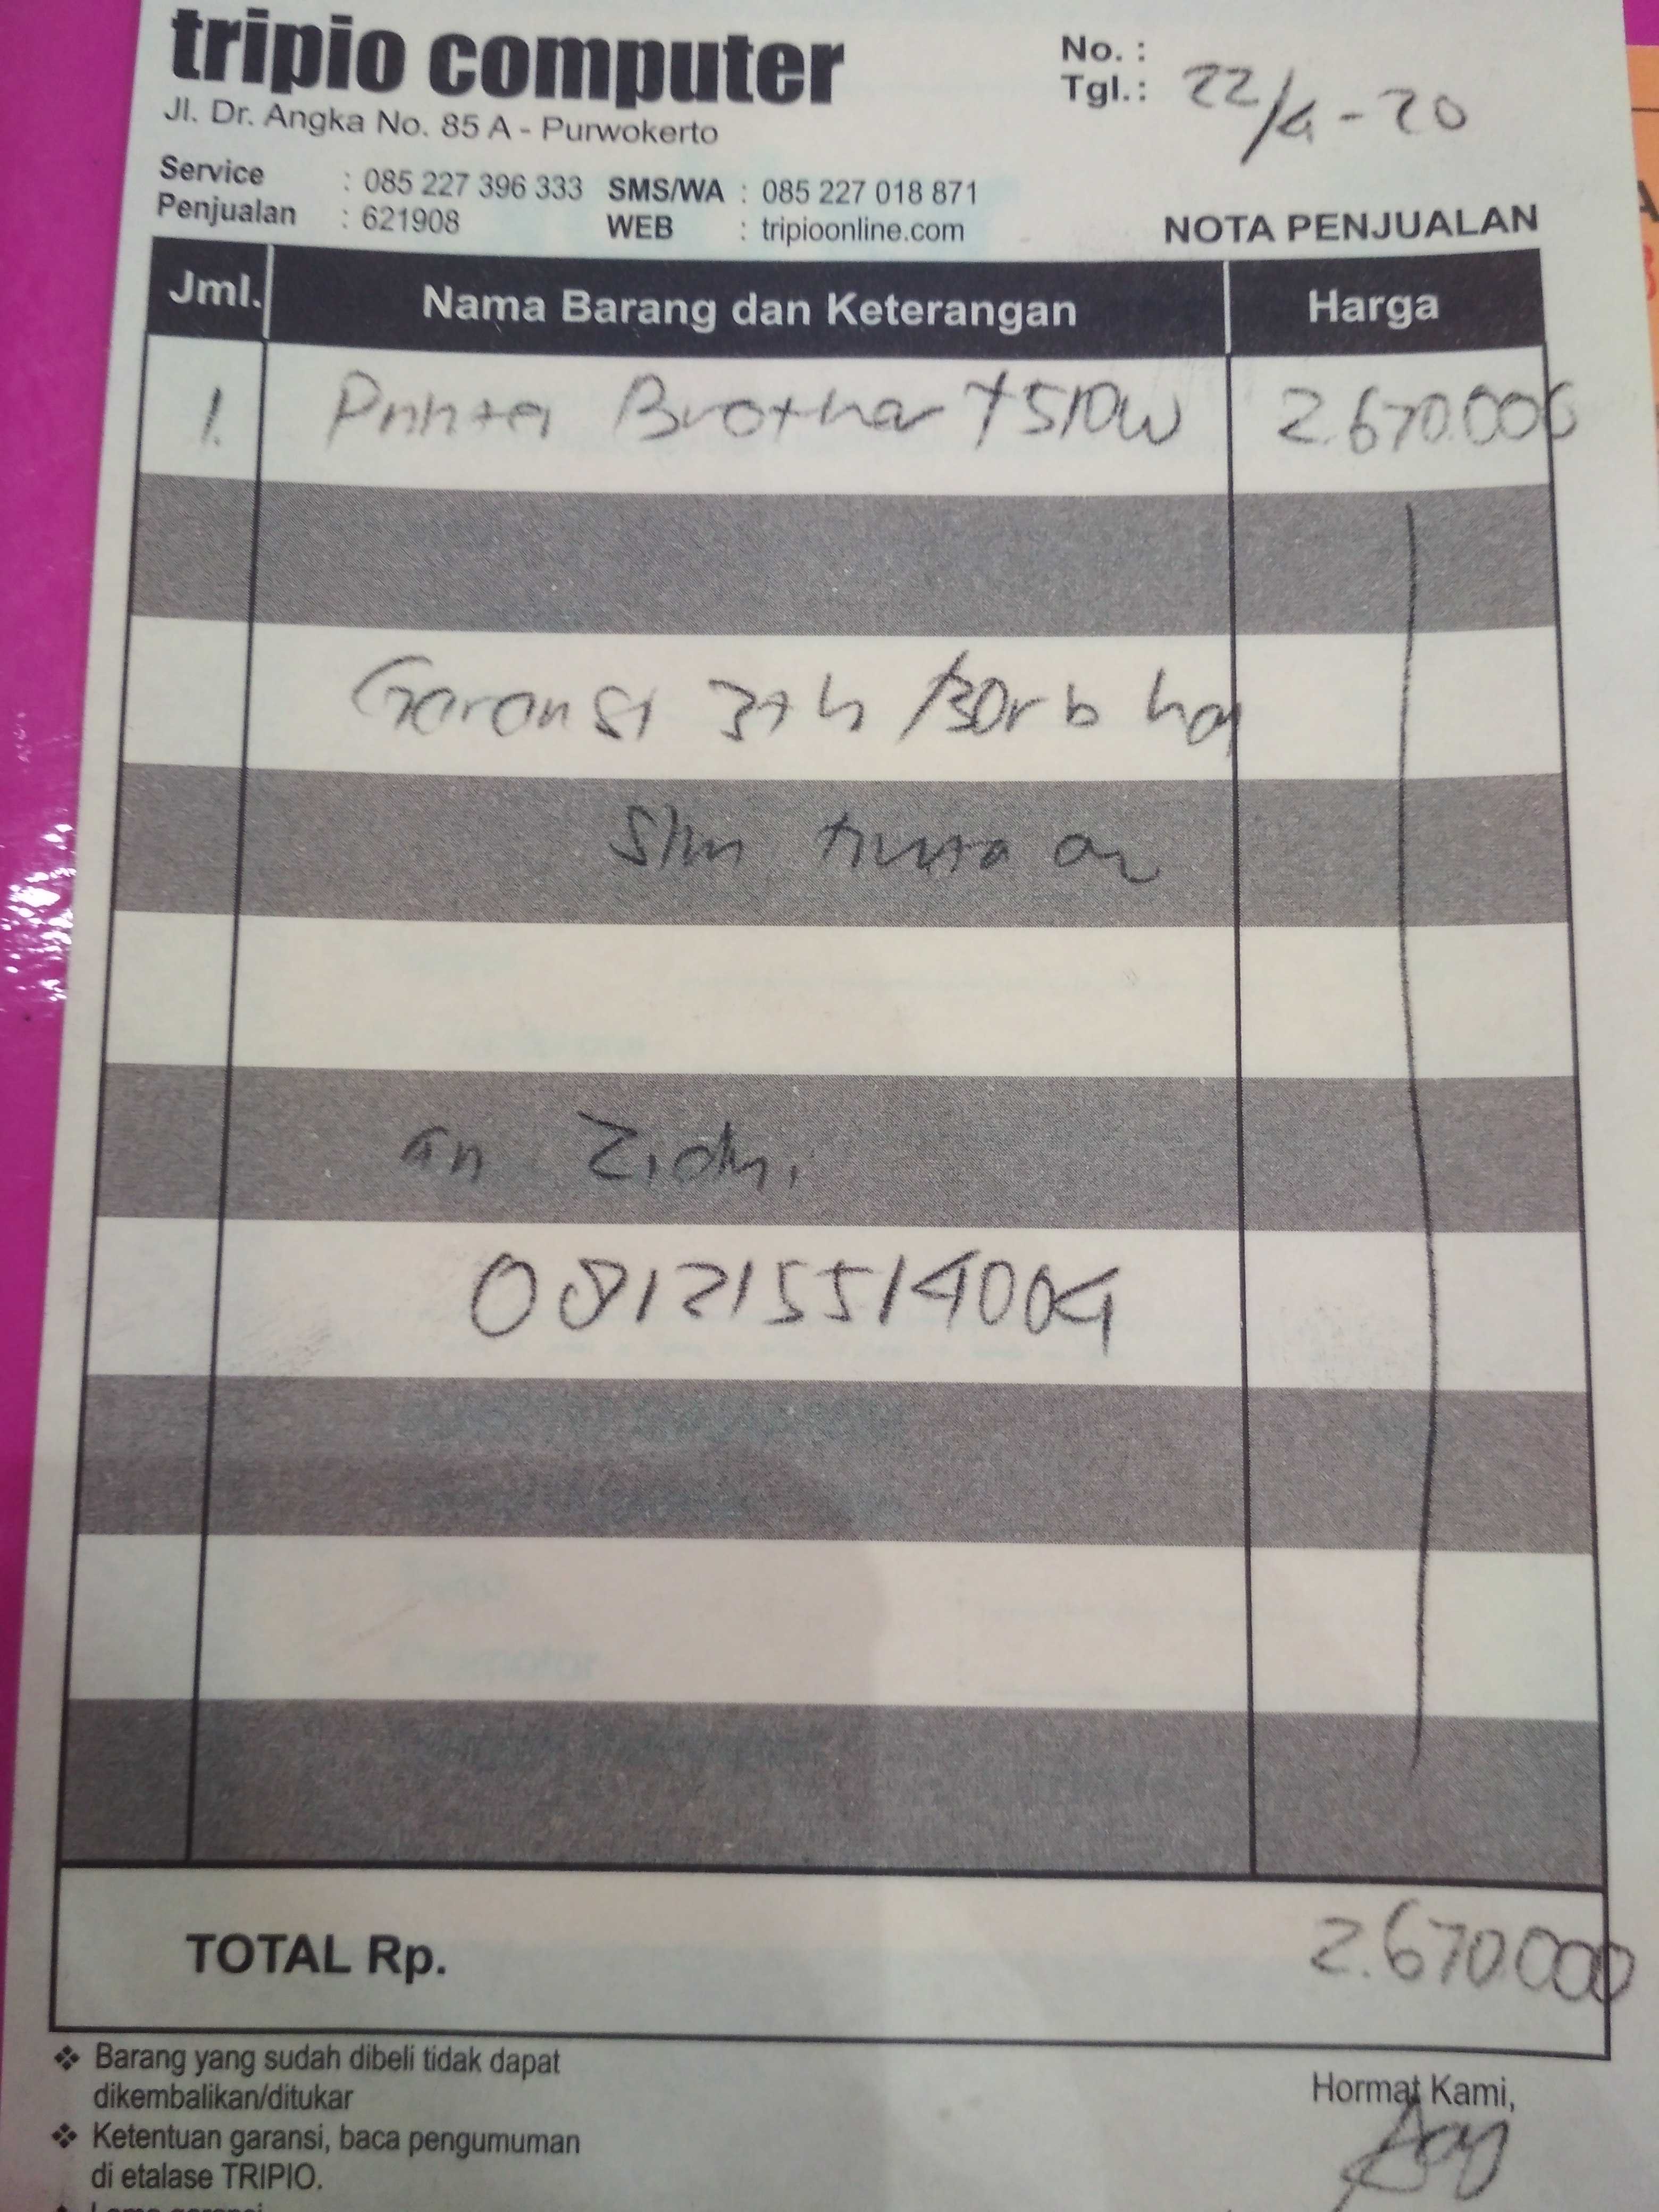 tripio computer
Jl. Dr. Angka No. 85 A - Purwokerto
No. :
Tgl. : 22/4 - 20
Service : 085 227 396 333 SMS/WA : 085 227 018 871
Penjualan : 621908 WEB : tripioonline.com
NOTA PENJUALAN
Jml. Nama Barang dan Keterangan Harga
1. Printer Brother T510W 2.670.000
Garansi 3th /30rb ha
an Zidni
081215514004
TOTAL Rp. 2.670.000
❖ Barang yang sudah dibeli tidak dapat
dikembalikan/ditukar
❖ Ketentuan garansi, baca pengumuman
di etalase TRIPIO.
Hormat Kami,